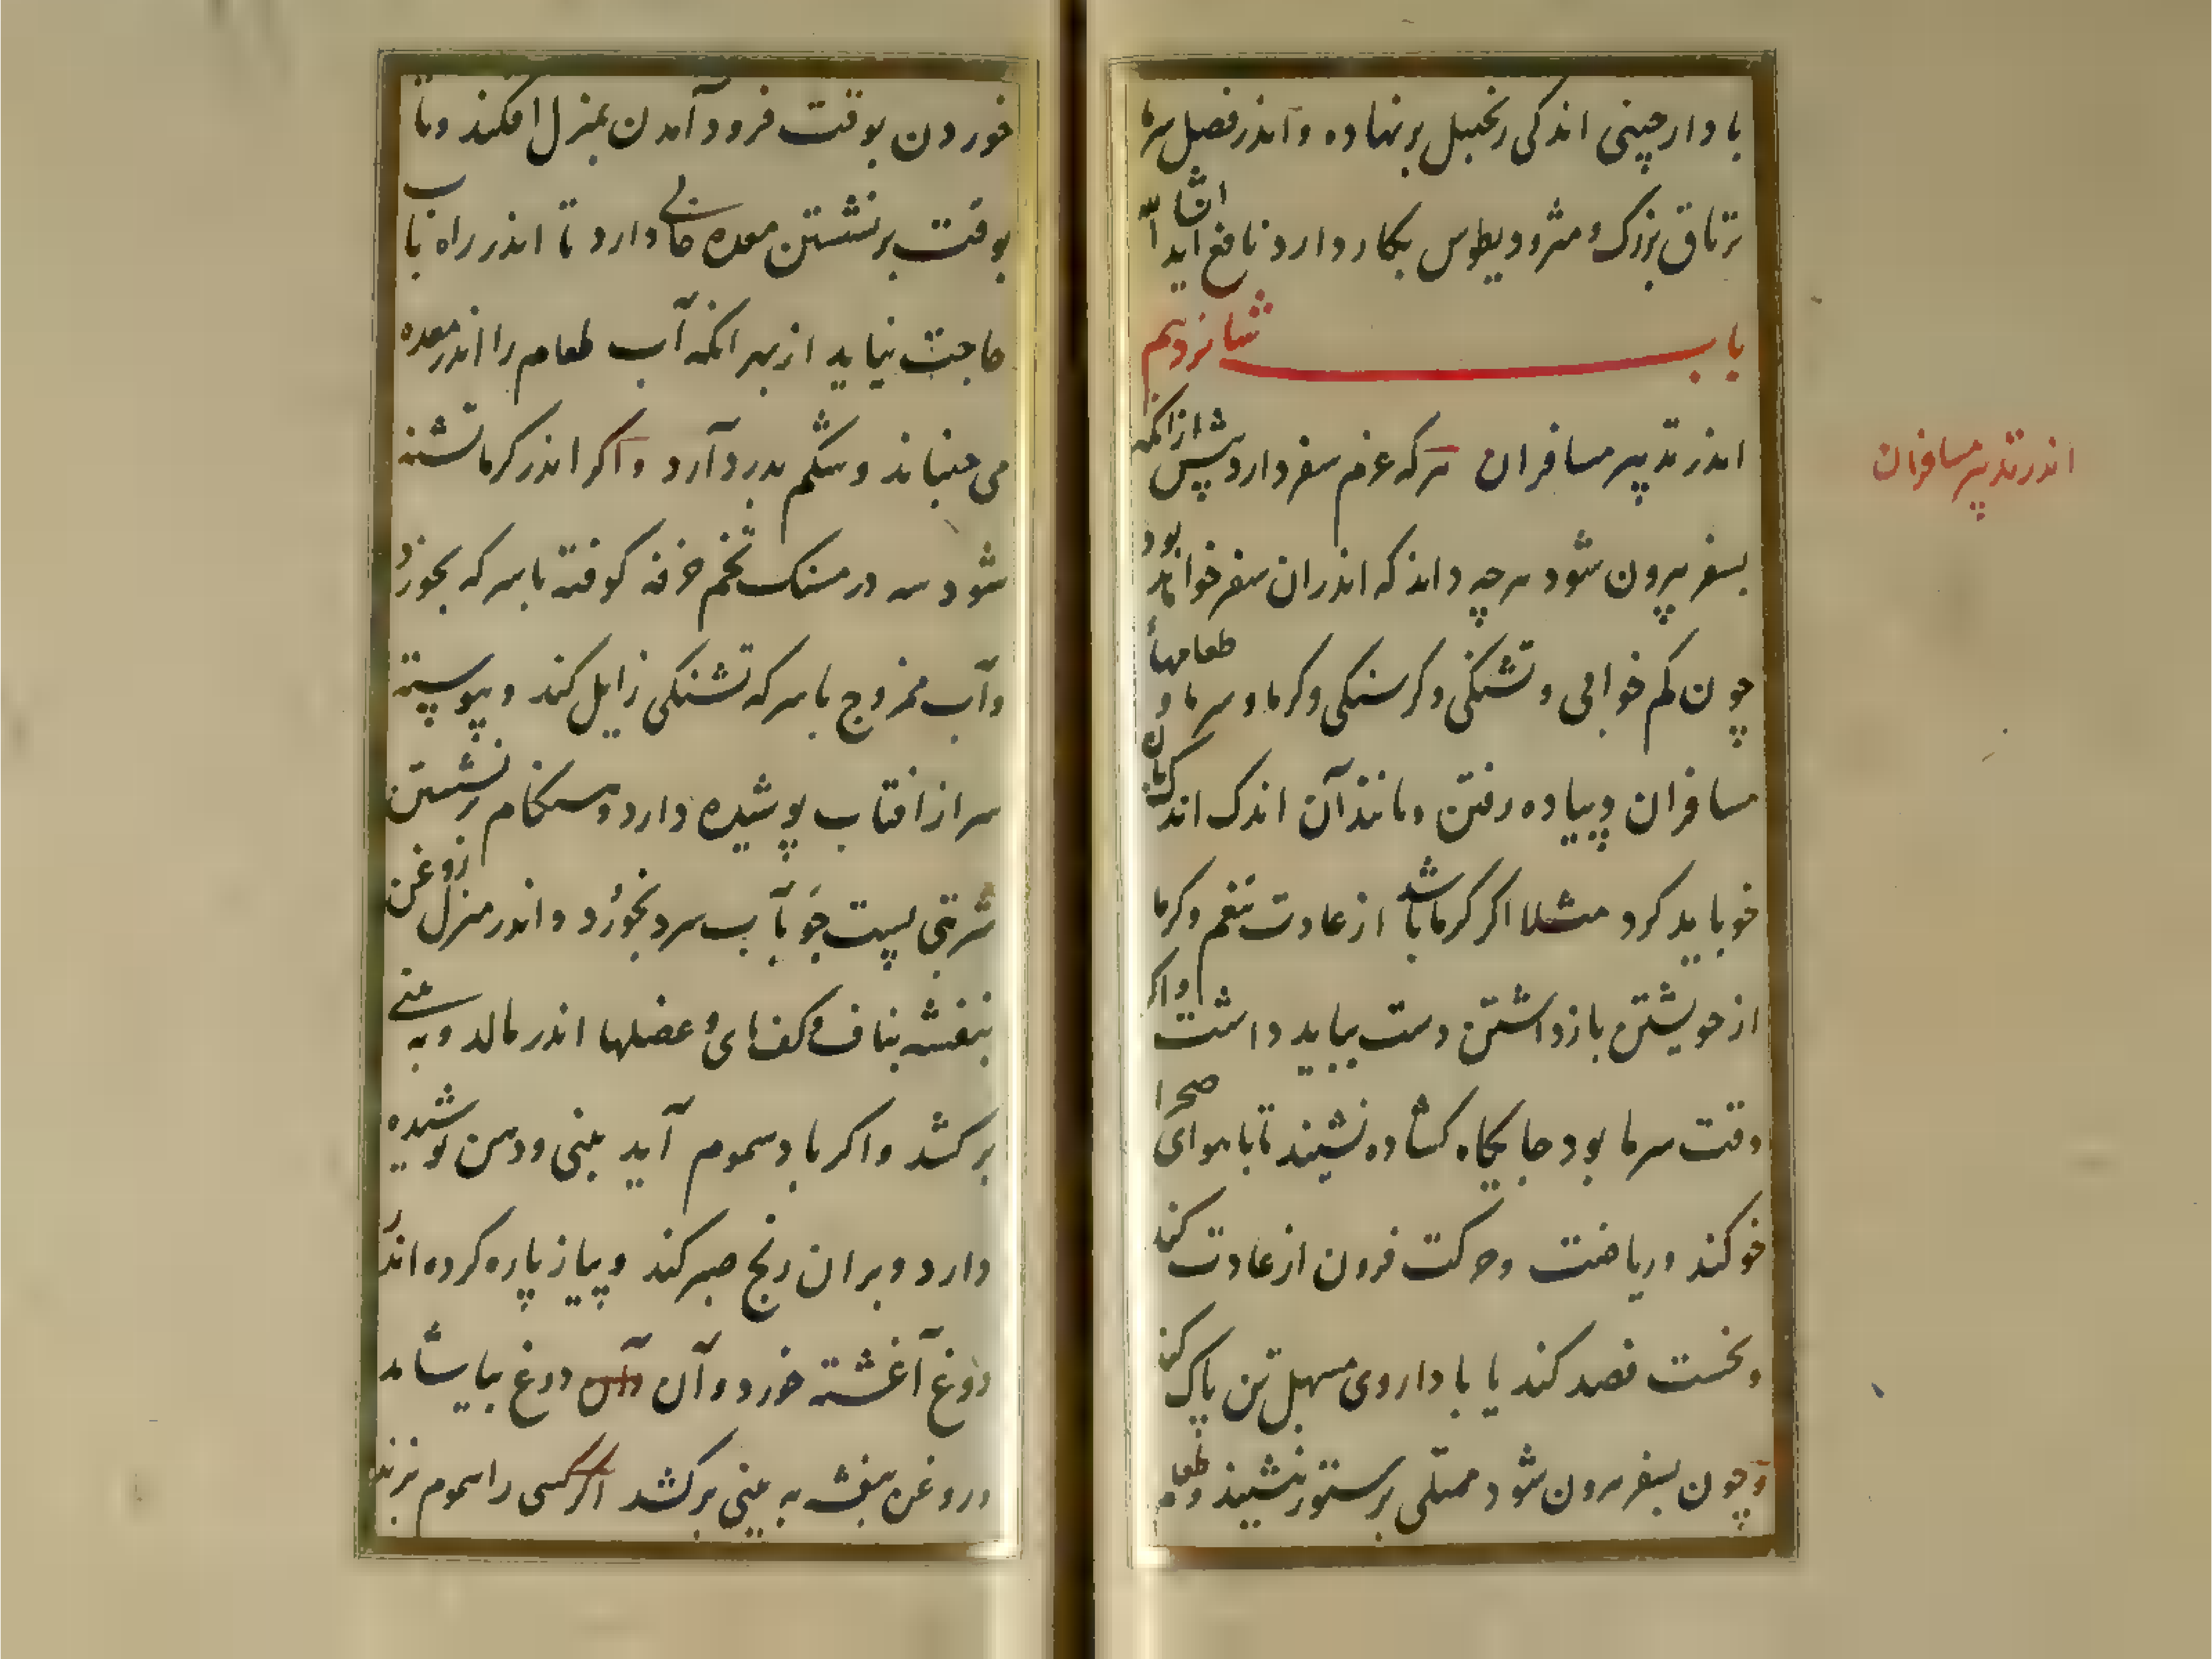 با دارچینی اندکی زنجبیل برنهاده و اندر فصل سرما
تریاق بزرک و مثرودیطوس بکار دارد نافع اید انشا الله
باب شانزدهم
اندر تدبیر مسافران هرکه عزم سفر دارد پیش از انکه
اندر تدبیر مسافران
بسفر بیرون شود هرچه داند که اندران سفر خواهد بود
چون کم خوابی و تشنکی و کرسنکی و کرما و سرما و طعامهاء
مسافران و پیاده رفتن و مانند آن اندک اندک بران
خو باید کرد مثلا اکر کرما باشد از عادت تنعم و کرما
از خویشتن بازداشتن دست بباید داشت و اکر
وقت سرما بود جایکاه کشاده نشیند تا با هوای صحرا
خو کند و ریاضت و حرکت فزون از عادت کند
و نخست فصد کند یا با داروی مسهل تن پاک کند
و چون بسفر بیرون شود ممتلی بر ستور ننشیند و طعام
خوردن بوقت فرود آمدن بمنزل افکند و تا
بوقت برنشستن معده خالی دارد تا اندر راه باب
حاجت نیاید از بهر انکه آب طعام را اندر معده
می جنباند و شکم بدرد آرد و اکر اندر کرما تشنه
شود سه درمسنک تخم خرفه کوفته با سرکه بخورد
و آب ممزوج با سرکه تشنکی زایل کند و پیوسته
سر از افتاب پوشیده دارد و بهنکام برنشستن
شربتی پست جو با آب سرد بخورد و اندر منزل روغن
بنفشه بناف و کف پای و عضلها اندر مالد و به بینی
برکشد و اکر باد سموم آید بینی و دهن پوشیده
دارد و بران رنج صبر کند و پیاز پاره کرده اندر
دوغ آغشته خورد و آن دوغ بیاشامد
و روغن بنفشه به بینی برکشد اکر کسی را سموم بزند